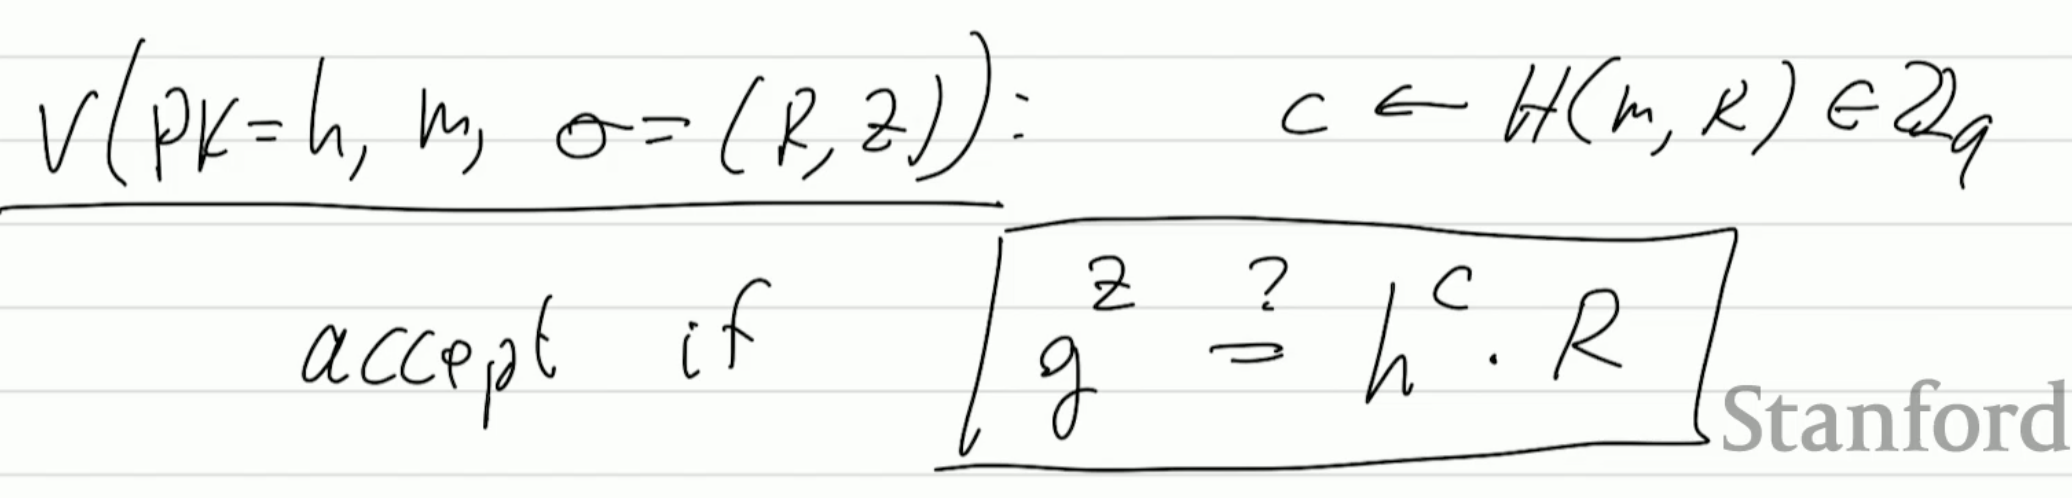 V(PK=h, m, σ=(R,z)): c ← H(m, R) ∈ ℤq
accept if g^z ?= h^c · R
Stanford